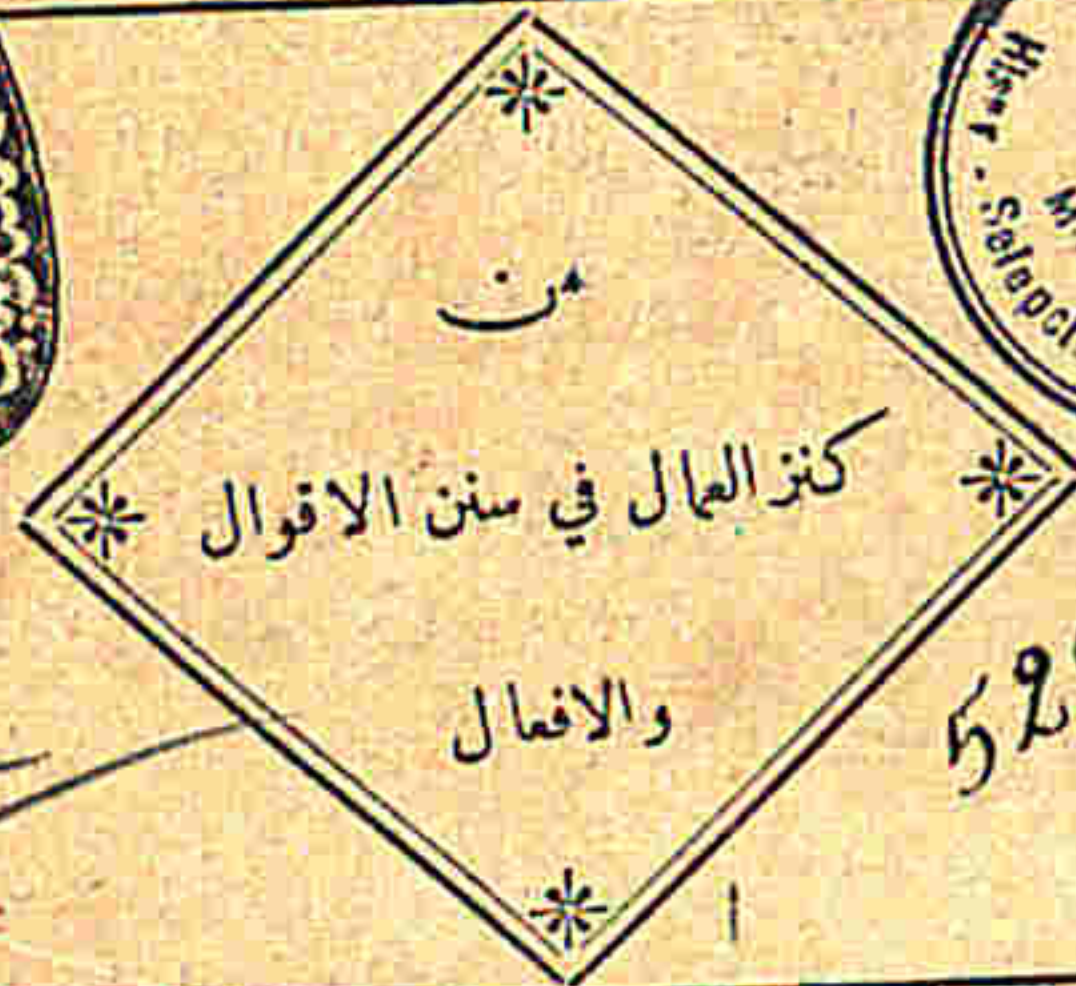 من
كنز العمال في سنن الاقوال
والافعال